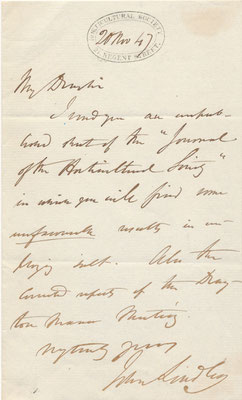 HORTICULTURAL SOCIETY
REGENT STREET
20 Nov 47
My Dear Sir
I send you an unpub-
lished sheet of the "Journal
of the Horticultural Society"
in which you will find some
unfavourable results in em-
ploying salt. Also the
corrected report of the Dray-
ton Manor Meeting
Yrs truly yours
John Lindley